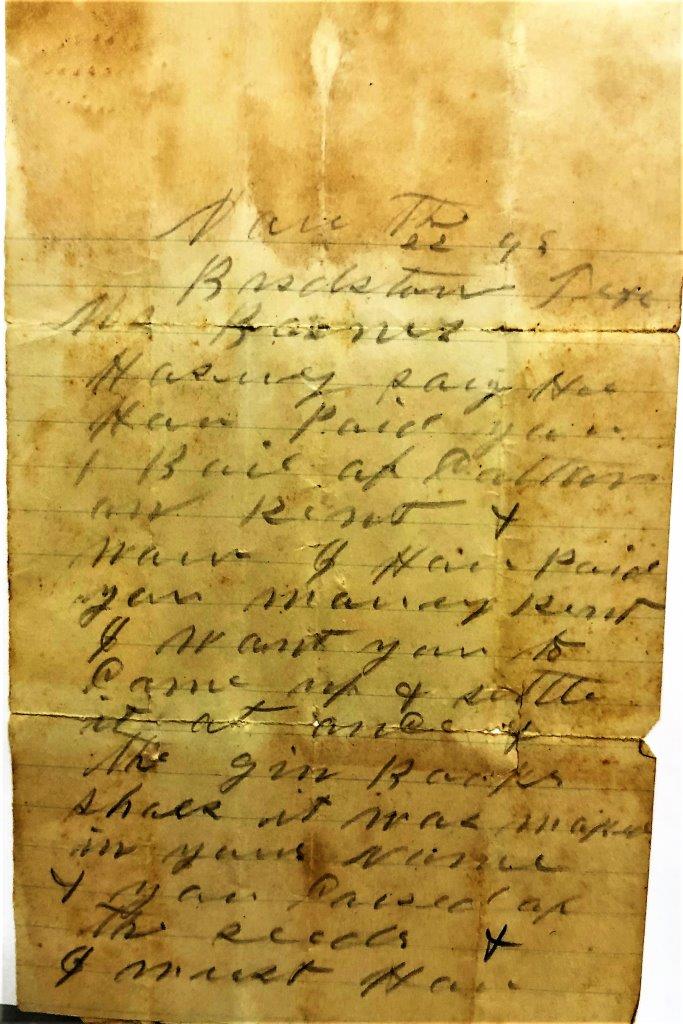 Nov The 22 98
Brodston Texe
Mr Barnes
say He
Hav Paid you
1 Bail of Cotton
on Rent &
now I Hav Paid
you money Rent
I want you to
Come up & settle
it at once
the gin Books
shoes it was
in your Name
& you
the seeds &
I must Hav